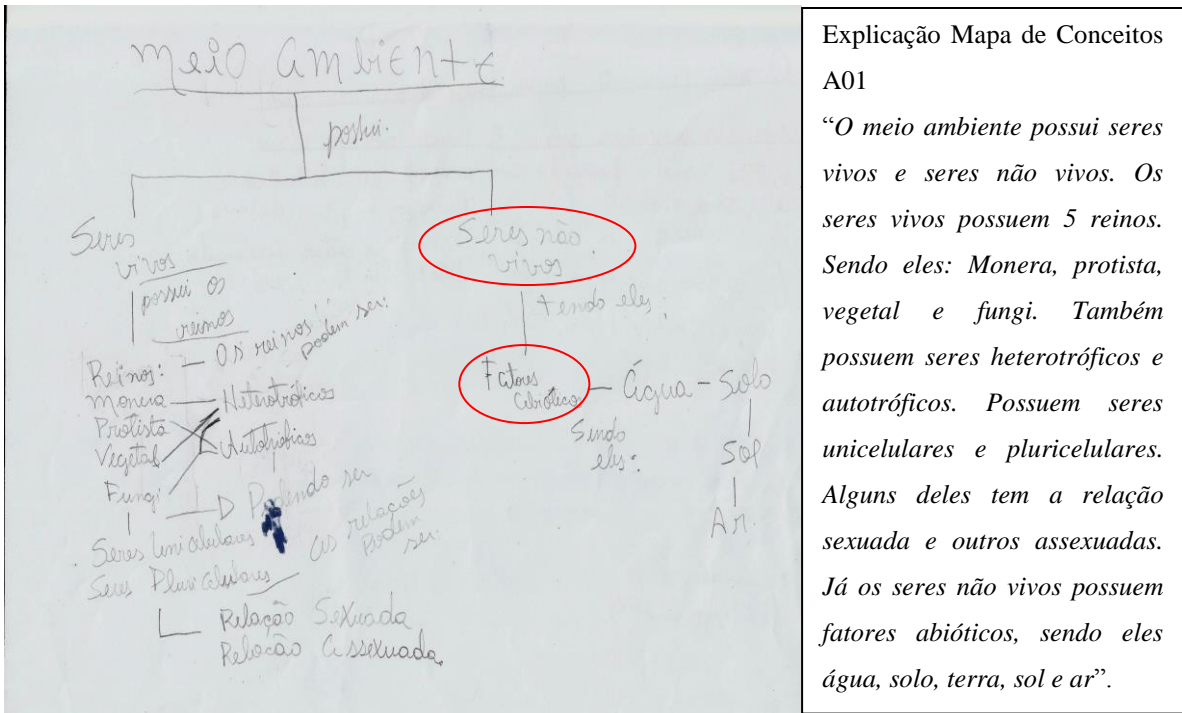 meio ambiente
possui.
Seres
vivos
possui os
reinos
Reinos: — Os reinos podem ser:
Monera — Heterotróficos
Protista
Vegetal
Autotróficos
Fungi
Podendo ser
Seres Unicelulares
Seres Pluricelulares
as relações
podem
ser:
Relação Sexuada
Relação Assexuada
Seres não
vivos
tendo eles:
Fatores
Abióticos — Água - Solo
Sendo
eles:
Sol
Ar.
Explicação Mapa de Conceitos
A01
“O meio ambiente possui seres
vivos e seres não vivos. Os
seres vivos possuem 5 reinos.
Sendo eles: Monera, protista,
vegetal e fungi. Também
possuem seres heterotróficos e
autotróficos. Possuem seres
unicelulares e pluricelulares.
Alguns deles tem a relação
sexuada e outros assexuadas.
Já os seres não vivos possuem
fatores abióticos, sendo eles
água, solo, terra, sol e ar”.